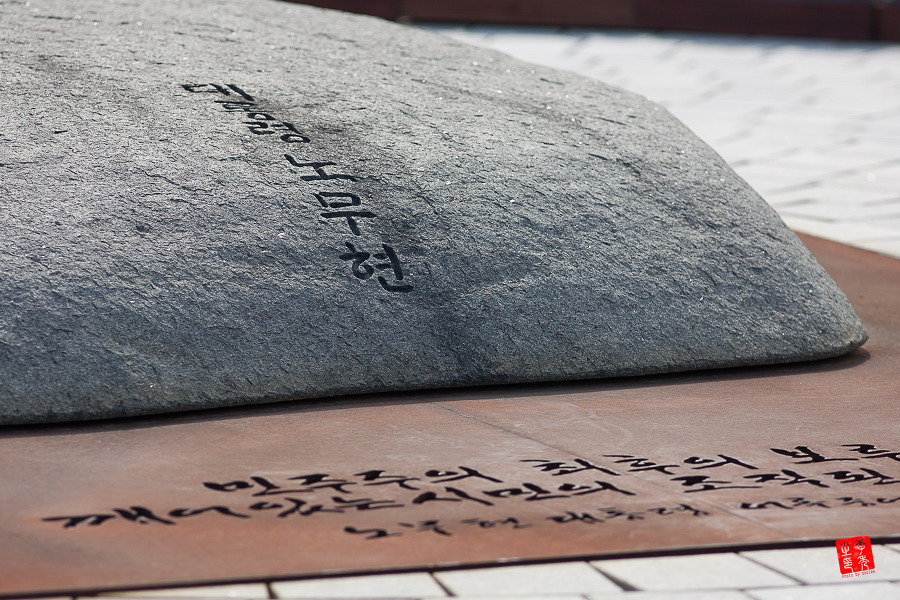 대통령 노무현
민주주의 최후의 보루
깨어있는 시민의 조직된
노무현 대통령